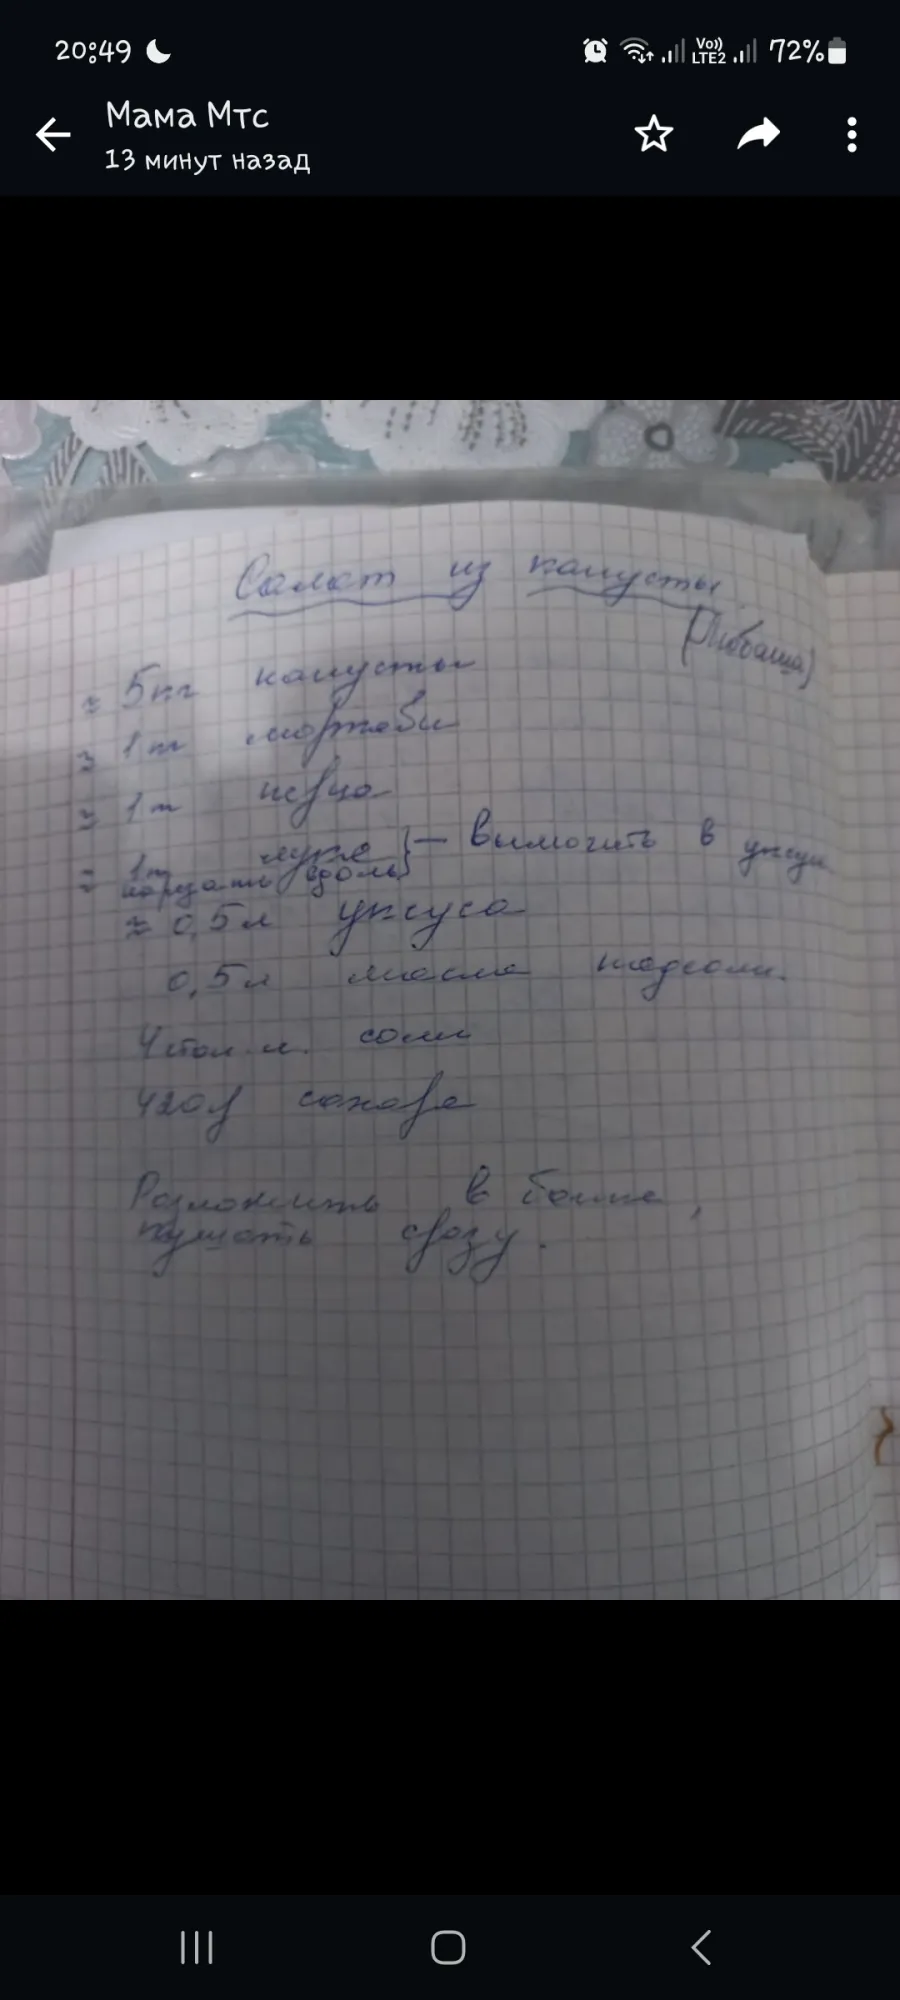 20:49 Vo)) LTE2 72%
Мама Мтс
13 минут назад
Салат из капусты
(Любаша)
≈ 5кг капусты
≈ 1кг моркови
≈ 1кг перца
≈ 1кг лука } — вымочить в уксусе
нарезать вдоль
≈ 0,5л уксуса
0,5л масла подсолн.
4 стол. л. соли
420г сахара
Разложить в банки,
кушать сразу.